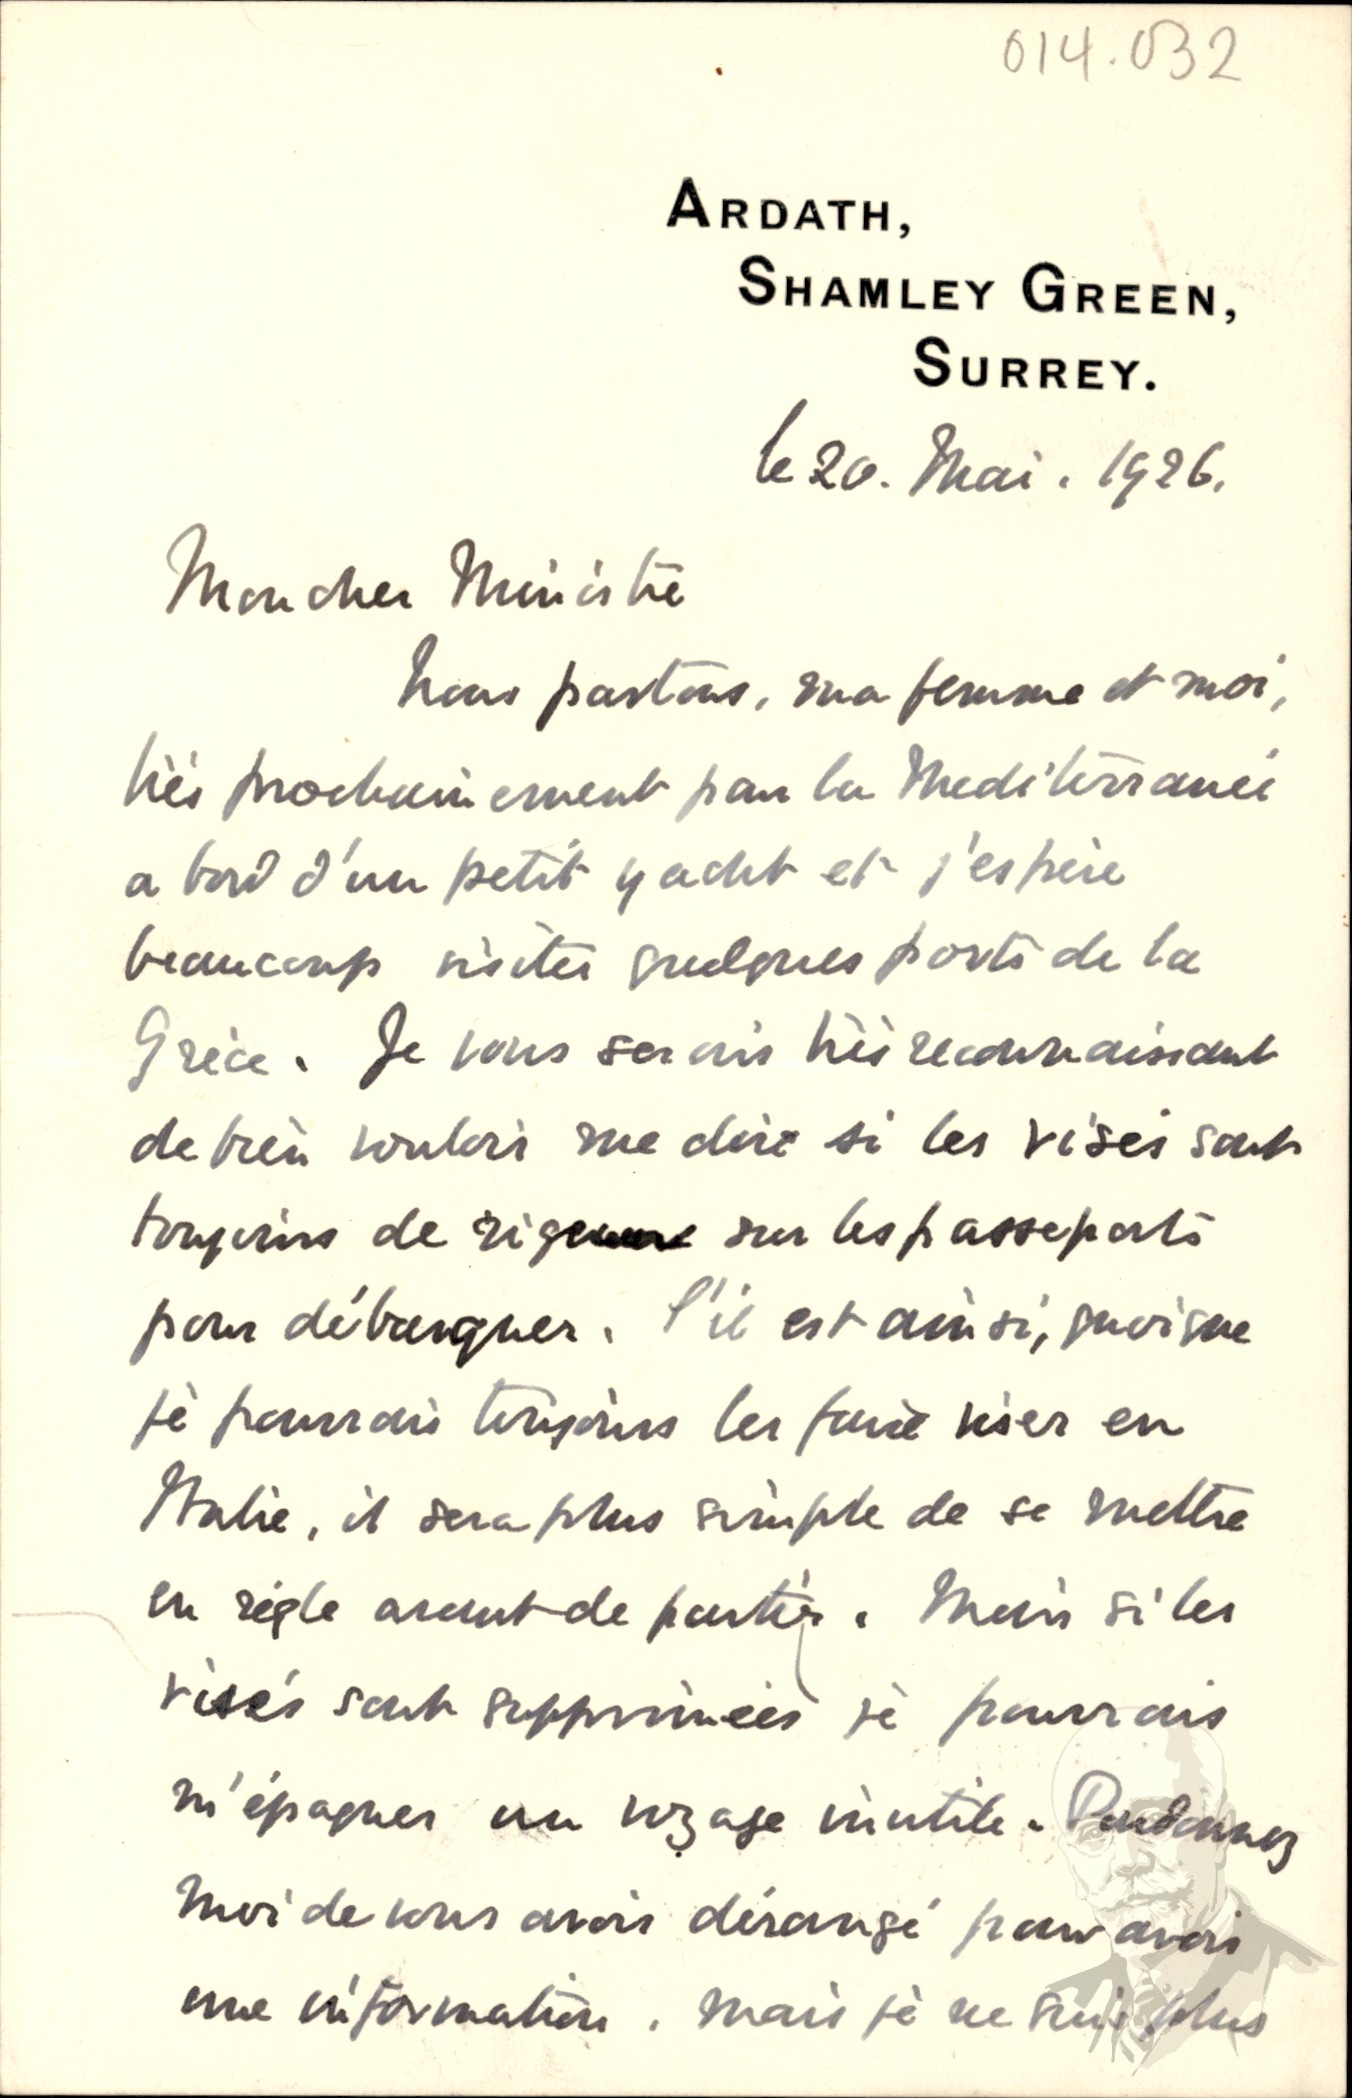 014.032
ARDATH,
SHAMLEY GREEN,
SURREY.
le 20. Mai. 1926.
Mon cher Ministre
Nous partons, ma femme et moi,
très prochainement pour la Mediterranée
a bord d'un petit yacht et j'espère
beaucoup visiter quelques ports de la
Grèce. Je vous serais très reconnaissant
de bien vouloir me dire si les visés sont
toujours de rigueur sur les passeports
pour débarquer. S'il est ainsi, quoique
je pourrais toujours les faire viser en
Italie, il sera plus simple de se mettre
en règle avant de partir. Mais si les
visés sont supprimées je pourrais
m'épagner un voyage inutile. Pardonnez
moi de vous avoir dérangé pour avoir
une information. Mais je ne suis plus